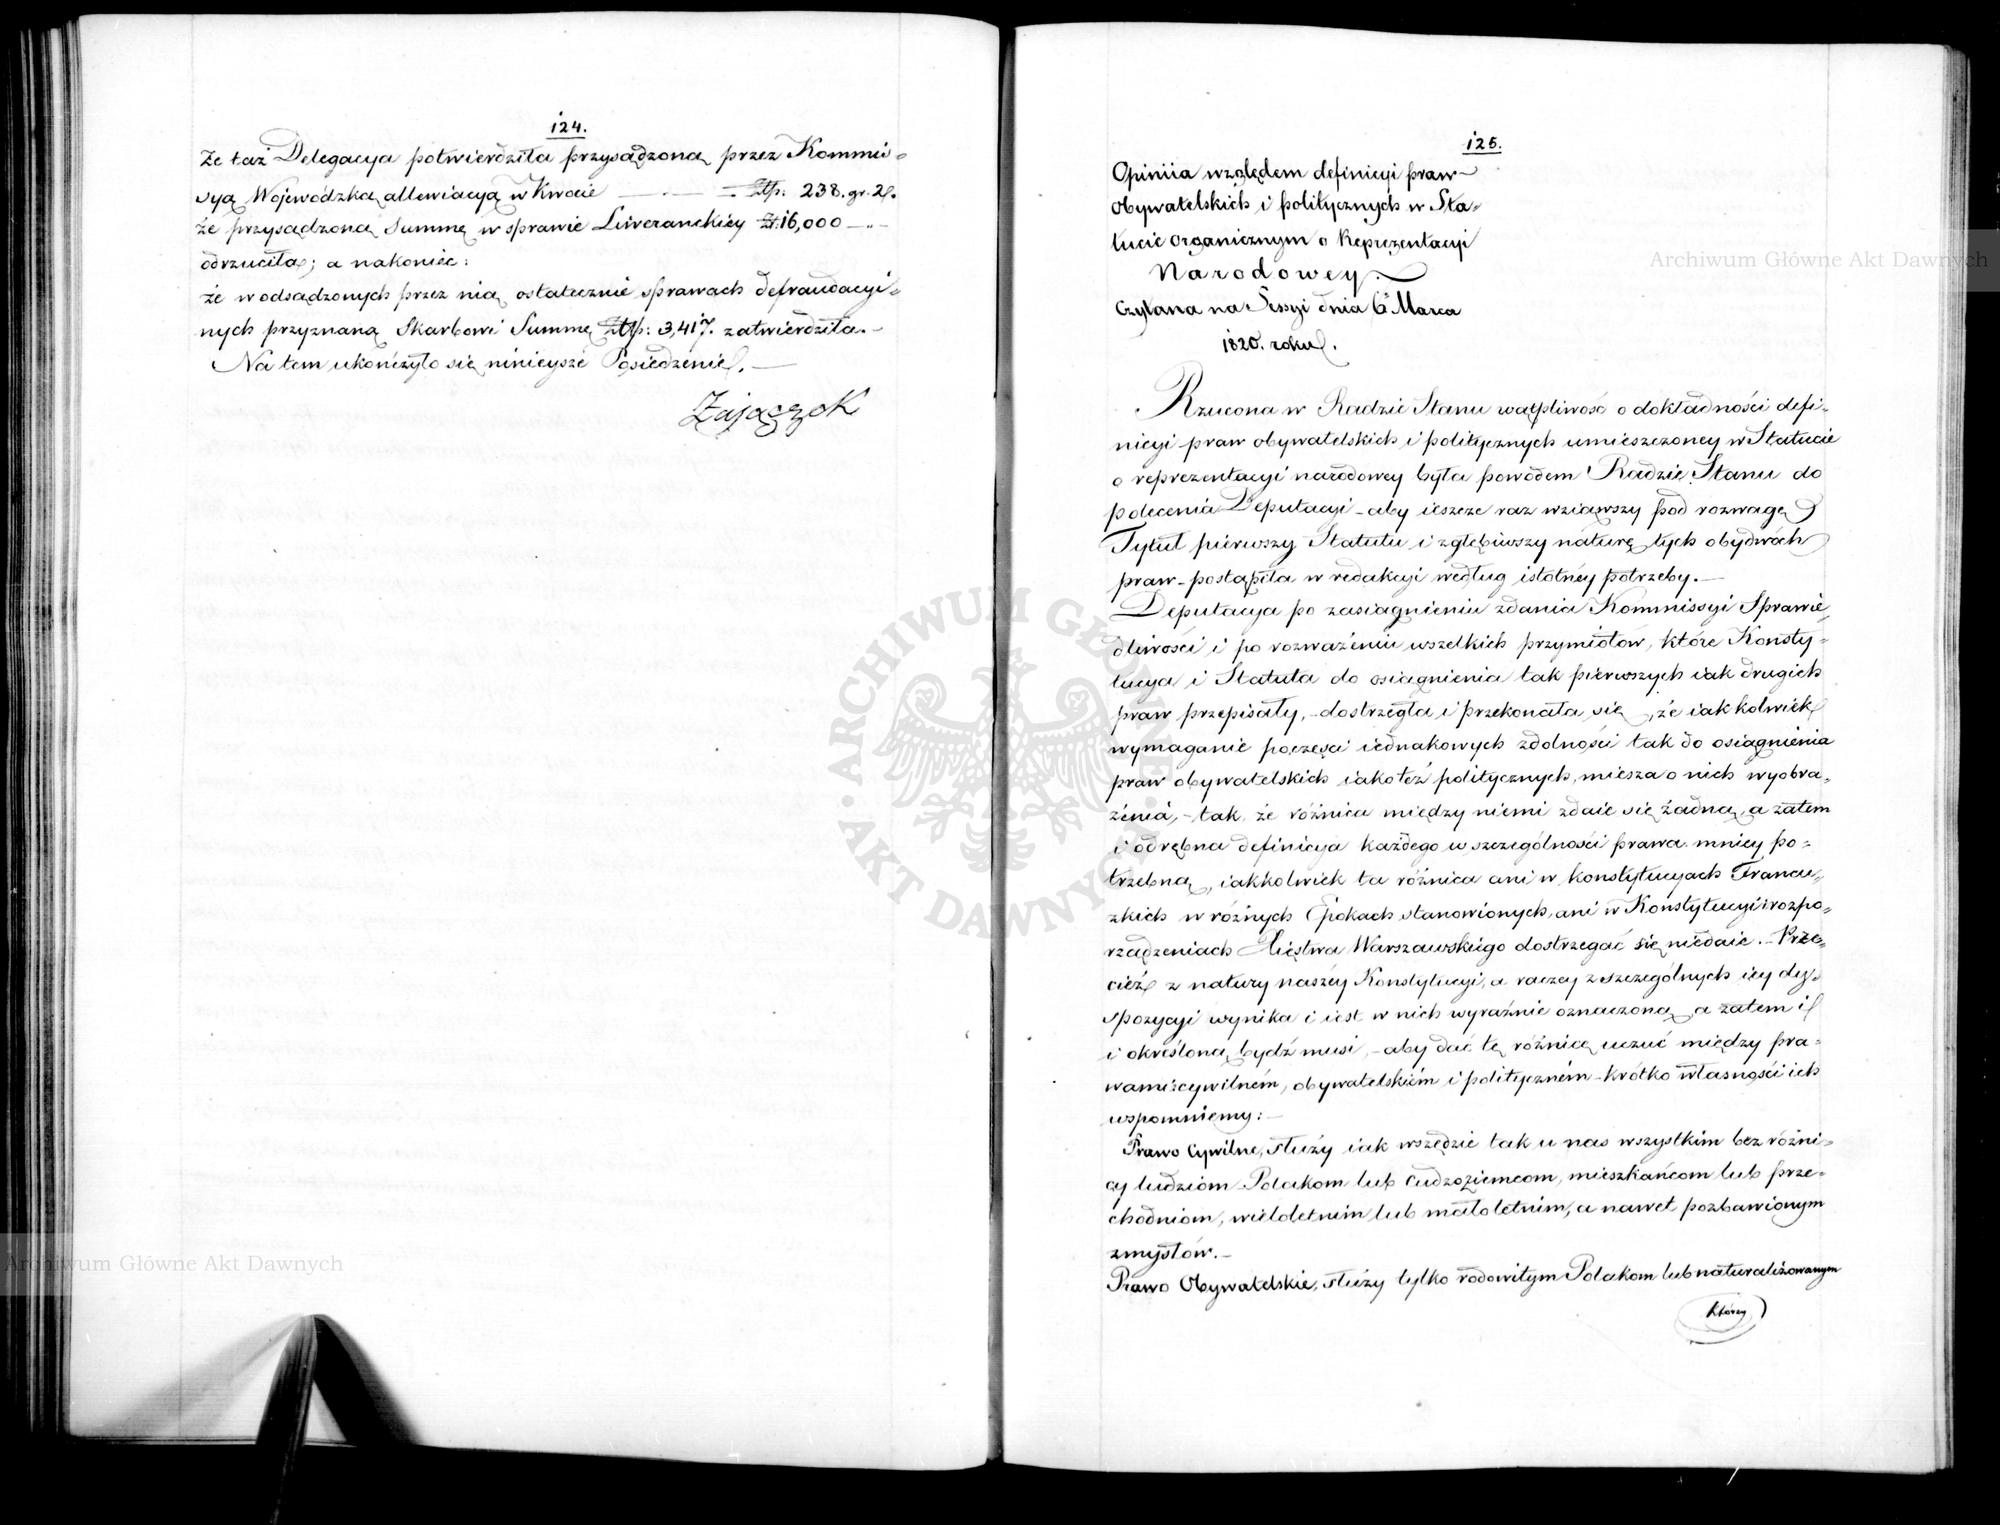 124.
że taż Delegacya potwierdziła przysądzoną przez Kommis-
syą Wojewódzką allewiacyą w Kwocie — — Złp: 238. gr. 2.
że przysądzoną Summę w sprawie Liweranckiey Zł: 16,000 —„—
odrzuciła; a nakoniec:
że w odsądzonych przez nią ostatecznie sprawach defraudacyi-
nych przyznaną Skarbowi Summę Złp: 3,417. zatwierdziła. —
Na tem ukończyło się ninieysze Posiedzenie. —
Zajączek
125.
Opiniia względem definicyi praw
Obywatelskich i politycznych w Sta-
tucie organicznym o Reprezentacyi
Narodowey.
Czytana na Sessyi dnia 6º Marca
1820. roku.
Rzucona w Radzie Stanu wątpliwość o dokładności defi-
nicyi praw obywatelskich i politycznych umieszczoney w Statucie
o reprezentacyi narodowey była powodem Radzie Stanu do
polecenia Deputacyi – aby ieszcze raz wziąwszy pod rozwagę
Tytuł pierwszy Statutu i zgłębiwszy naturę tych obydwóch
praw – postąpiła w redakcyi według istotnéy potrzeby. —
Deputacya po zasiągnieniu zdania Kommissyi Sprawie-
dliwości i po rozważeniu wszelkich przymiotów, które Konsty-
tucya i Statuta do osiągnienia tak pierwszych iak drugich
praw przepisały, – dostrzegła i przekonała się, że iakkolwiek
wymaganie poczęści iednakowych zdolności tak do osiągnienia
praw obywatelskich iakoteż politycznych, miesza o nich wyobra-
żenia, – tak, że różnica między niemi zdaie się żadną, a zatem
i odrębna definicyja każdego w szczególności prawa mniey po-
trzebną, iakkolwiek ta różnica ani w konstytucyach Francu-
zkich w różnych Epokach stanowionych, ani w Konstytucyi i rozpo-
rządzeniach Xięstwa Warszawskiego dostrzegać się niedaie. – Prze-
cież z natury naszéy Konstytucyi, a raczey z szczególnych iey dy-
spozycyi wynika i iest w nich wyraźnie oznaczoną, a zatem i
i określoną bydź musi, – aby dać tę różnicę uczuć między pra-
wami: cywilném, obywatelskiém i polityczném – krótko własności ich
wspomniemy: —
Prawo Cywilne, służy iak wszędzie tak u nas wszystkim bez różni-
cy ludziom Polakom lub cudzoziemcom, mieszkańcom lub prze-
chodniom, wieloletnim lub małoletnim, a nawet pozbawionym
zmysłów. —
Prawo Obywatelskie, służy tylko rodowitym Polakom lub naturalizowanym
którzy
Archiwum Główne Akt Dawnych
Archiwum Główne Akt Dawnych
ARCHIWUM GŁÓWNE · AKT DAWNYCH ·